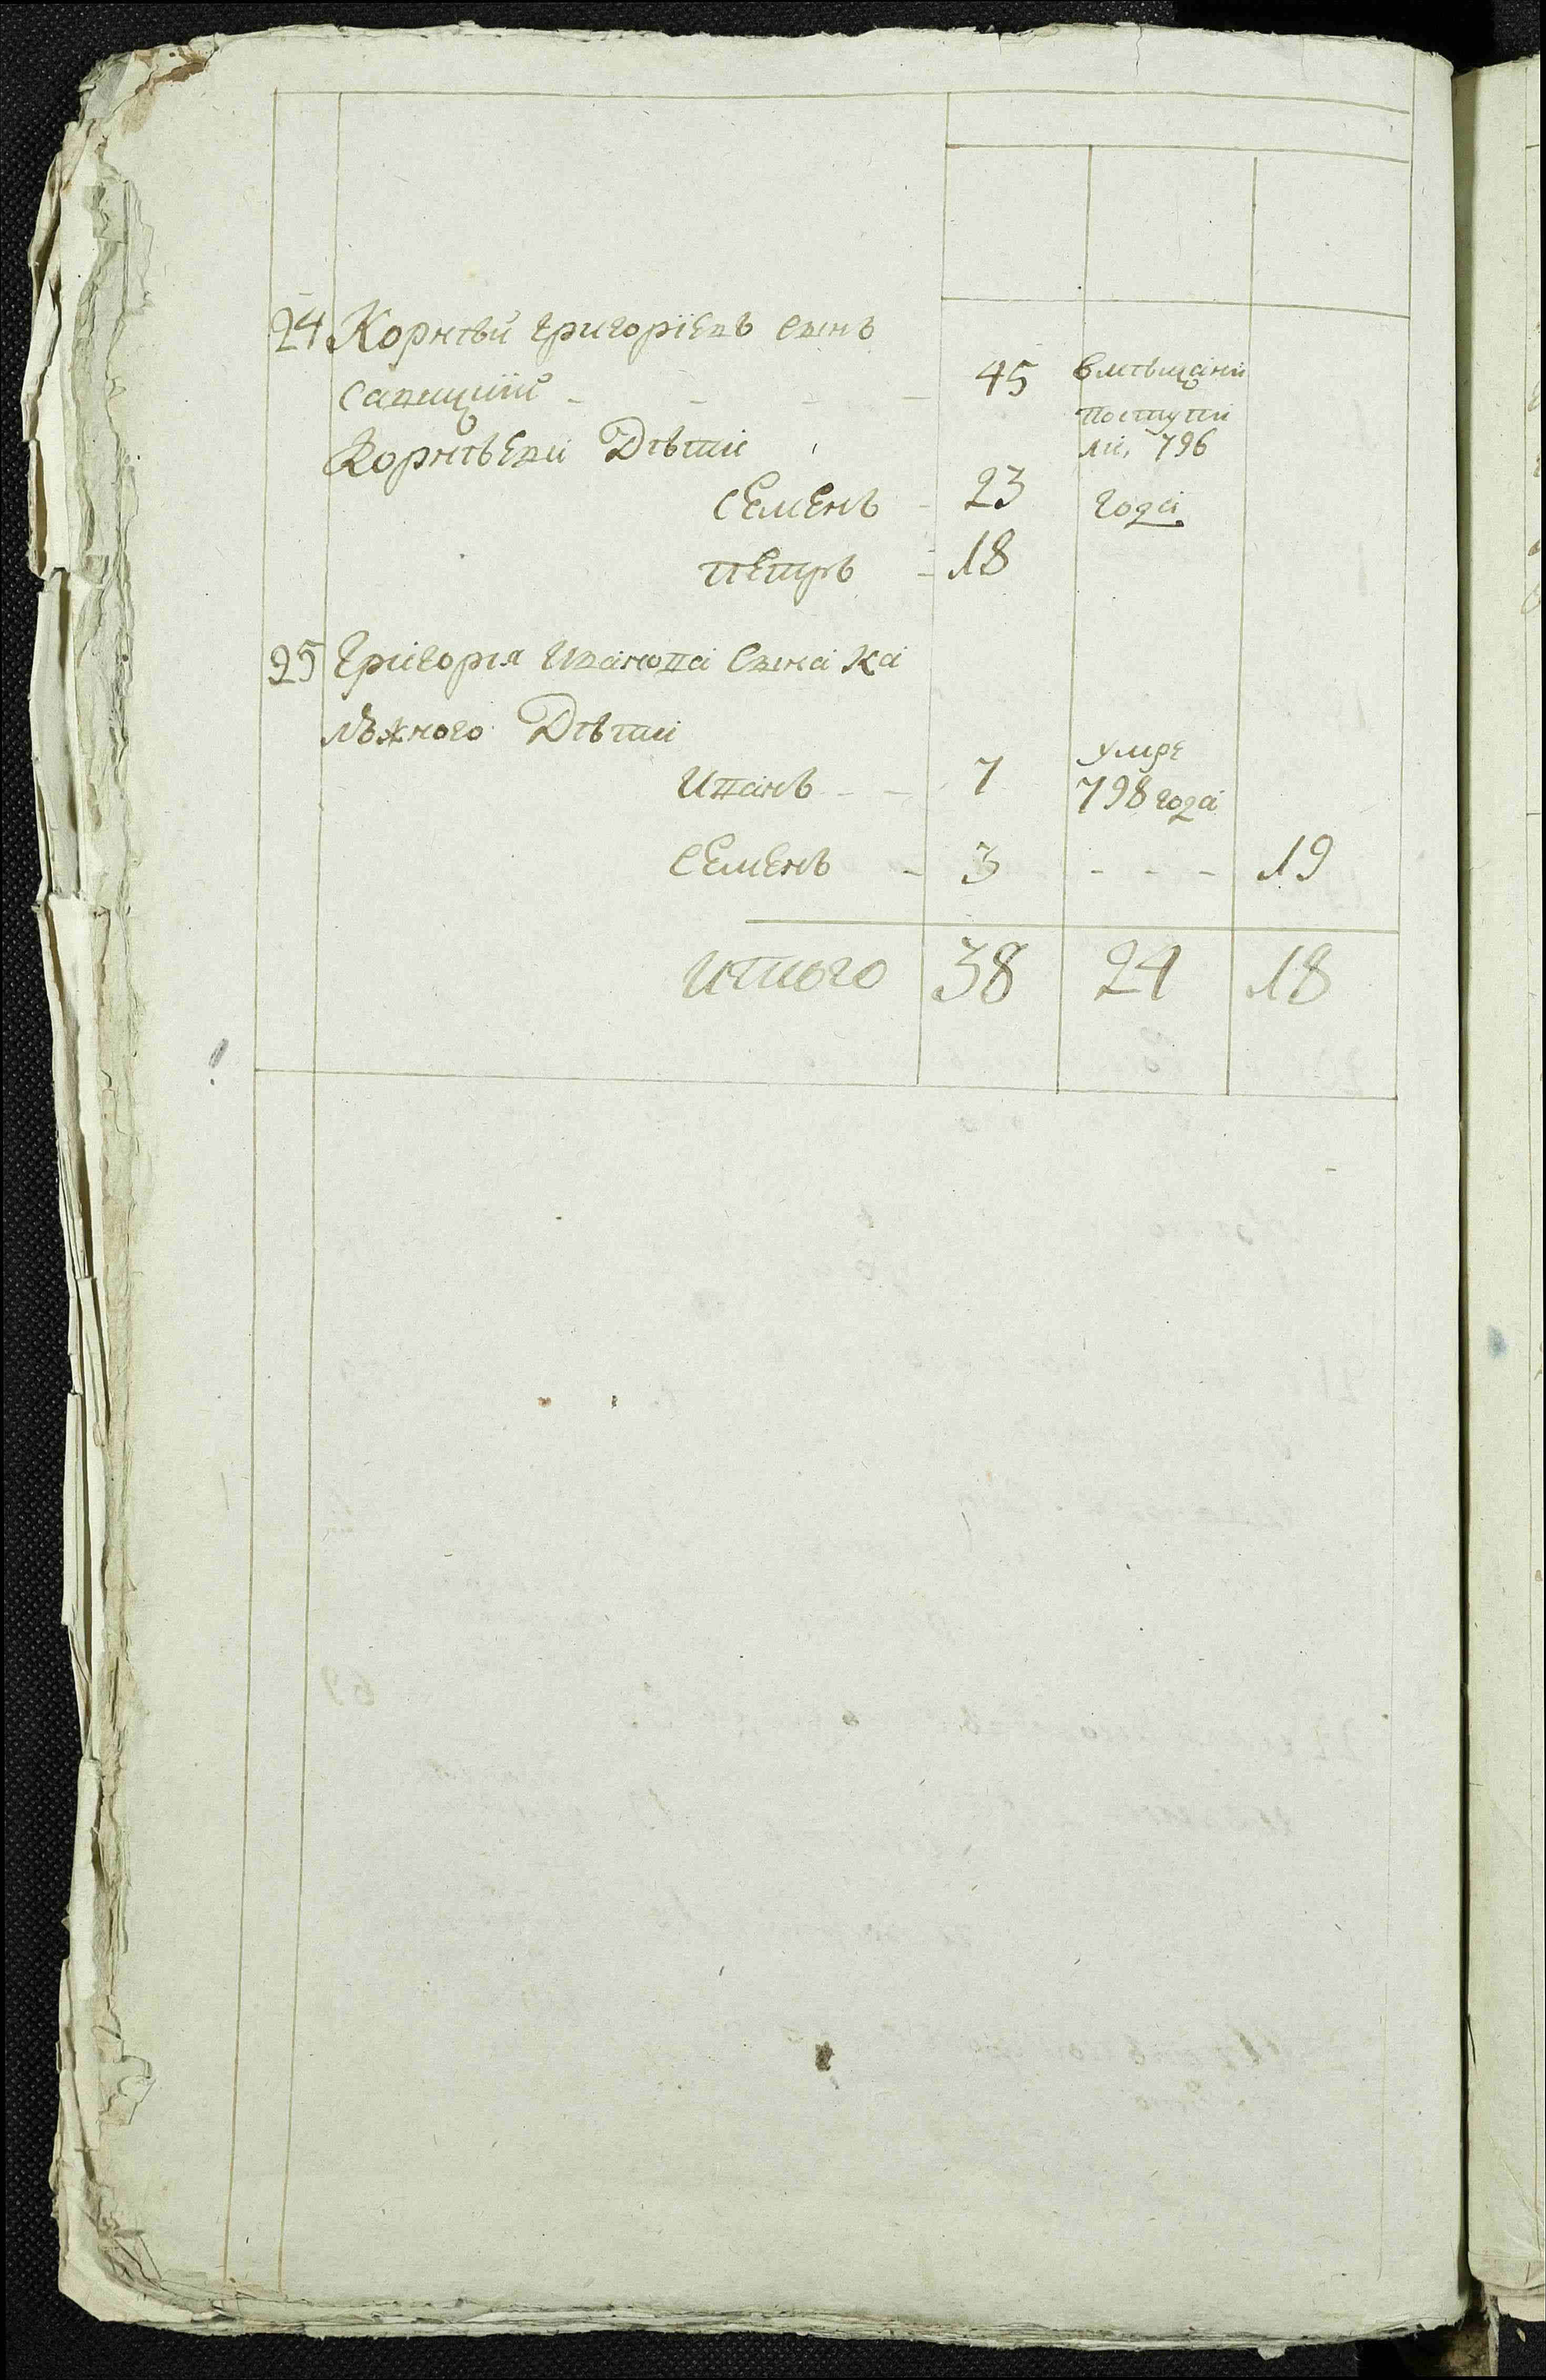 24 Корнѣй Григоріевъ Сынъ
Савицкій - - - - 45 вмѣщани
поступи
Корнѣеви Дѣти ли, 796
Семенъ - 23 года
Петръ - 18
25 Григорія Иванова Сына Ка
лѣжного Дѣти
умре
Иванъ - - 7 798 года
Семенъ - 3 - - - 19
Итого 38 24 18